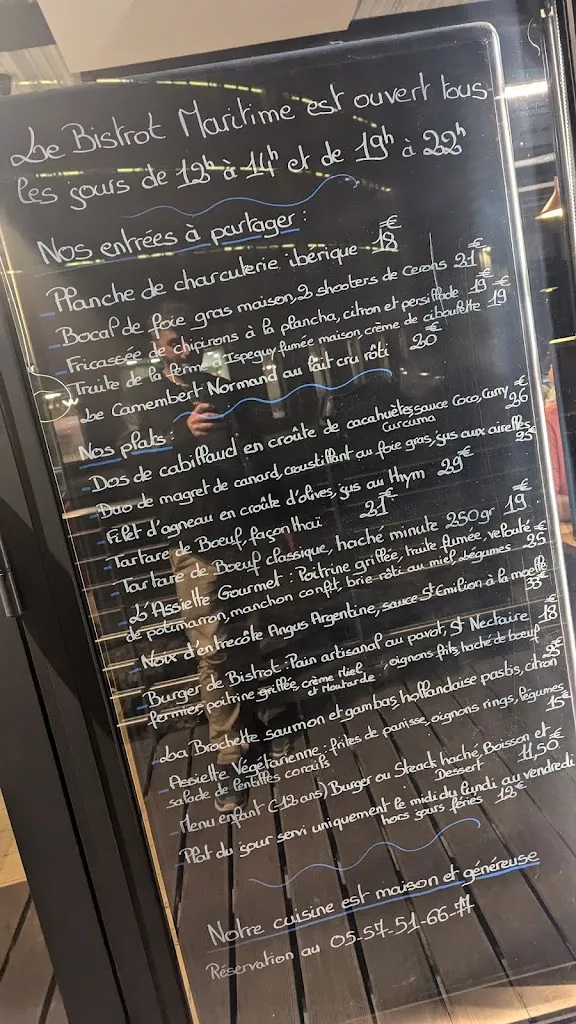 Le Bistrot Maritime est ouvert tous
les jours de 12h à 14h et de 19h à 22h
Nos entrées à partager :
- Planche de charcuterie ibérique 18€
- Bocal de foie gras maison, 2 shooters de Cerons 21€
- Fricassée de chipirons à la plancha, citron et persillade 19€
- Truite de la ferme d'Ispeguy fumée maison, crème de ciboulette 19€
- Le Camembert Normand au lait cru rôti 20€
Nos plats :
- Dos de cabillaud en croûte de cacahuètes, sauce Coco, Curry, 26€
Curcuma
- Duo de magret de canard, croustillant au foie gras, jus aux airelles 25€
- Filet d'agneau en croûte d'olives, jus au thym 29€
- Tartare de Boeuf, façon thaï 21€
- Tartare de Boeuf classique, haché minute 250gr 19€
- L'Assiette Gourmet : Poitrine grillée, truite fumée, velouté
de potimarron, manchon confit, brie rôti au miel, légumes 25€
- Noix d'entrecôte Angus Argentine, sauce St Emilion à la moelle
33€
- Burger de Bistrot : Pain artisanal au pavot, St Nectaire 18€
fermier, poitrine grillée, crème Miel et Moutarde, oignons frits, haché de boeuf
- La Brochette saumon et gambas, hollandaise pastis, citron 25€
- Assiette Végétarienne : frites de panisse, oignons rings, légumes,
salade de lentilles corails 15€
- Menu enfant (-12 ans) Burger ou Steack haché, Boisson et
Dessert 11,50€
- Plat du jour servi uniquement le midi du lundi au vendredi
hors jours fériés 12€
Notre cuisine est maison et généreuse
Réservation au 05-57-51-66-77